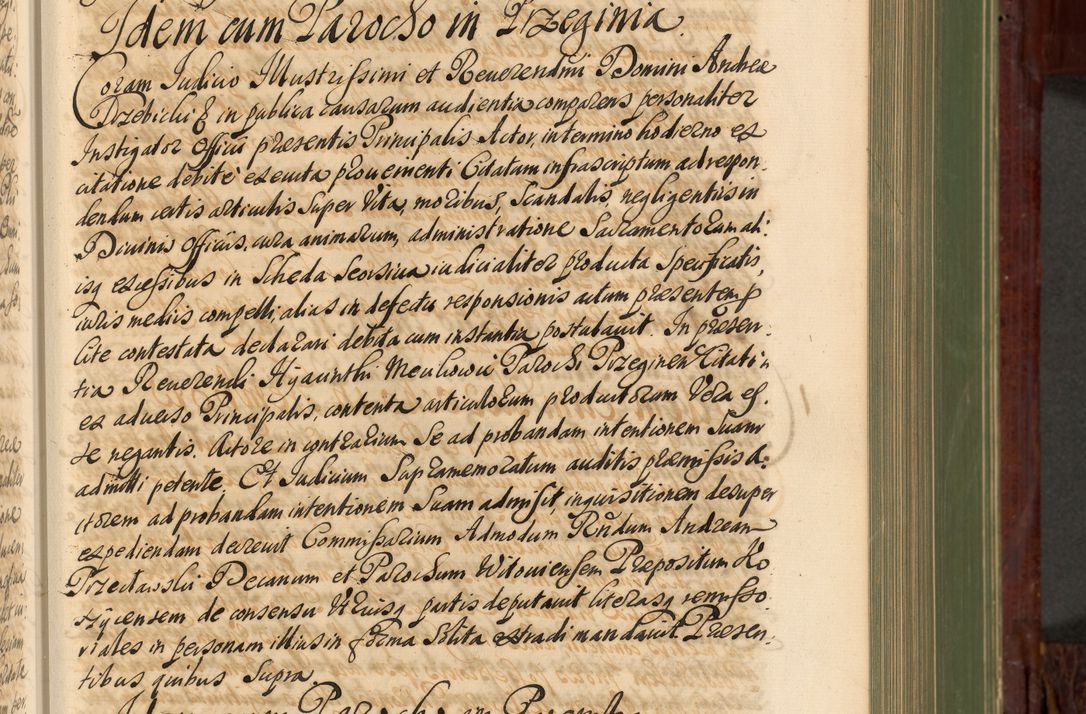 Idem cum Parocho in Przeginia.
Coram Judicio Illustrissimi et Reuerendmi Domini Andreæ
Trzebicki & in publica causarum audientia comparens personaliter
Instigator Officii præsentis Principalis Actor, in termino hodierno ex
citatione debite executa proueinenti Citatam infrascriptum ad respon-
dendum certis articulis super Vita, moribus, Scandalis, negligentiis in
Diuinis Officiis, cura animarum, administratione Sacramentorum ali-
isq excessibus in Scheda Seorsiua iudicialiter producta Specificatis,
iuris mediis compelli, alias in defectu responsionis actum præsentem p
lite contestata declarari debita cum instantia postulauit. In præsen-
tia Reuerendi Hyacinthi Meukowic Parochi Przeginen Citati
ex aduerso Principalis, contenta articulorum productorum Vera es-
se negantis. Actore in contrarium se ad probandam intentionem Suam
admitti petente. Et Iudicium Supramemoratum auditis præmissis A-
ctorem ad probandam intentionem Suam admisit, inquisitionem desuper
expediendam decreuit Commissarium Admodum Rndum Andream
Przecławski Decanum et Parochum Witouiensem Præpositum Ko-
szycensem de consensu Vtriusq partis deputauit literasq remisso-
riales in personam illius in forma Solita extradi mandauit. Præsen-
tibus quibus Supra.